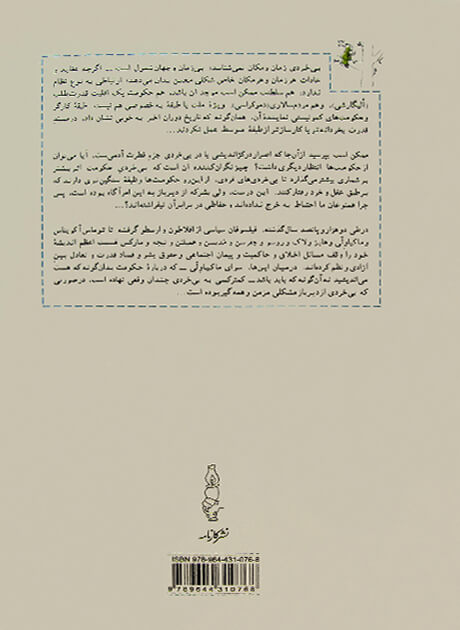 بی‌خردی زمان و مکان نمی‌شناسد؛ بی‌زمان و جهان‌شمول است ــ اگرچه عقاید و
عادات هر زمان و هر مکان خاص شکلی معین بدان می‌دهد؛ ارتباطی به نوع نظام
ندارد: هم سلطنت ممکن است موجد آن باشد، هم حکومت یک اقلیت قدرت‌طلب
(الیگارشی)، و هم مردم‌سالاری (دموکراسی). ویژۀ ملت یا طبقۀ به خصوصی هم نیست. طبقۀ کارگر
و حکومت‌های کمونیستی نمایندۀ آن، همان‌گونه که تاریخ دوران اخیر به خوبی نشان داد، در مسند
قدرت بخردانه‌تر یا کارسازتر از طبقۀ متوسط عمل نکردند...
ممکن است بپرسید از آن‌جا که اصرار در کژاندیشی یا در بی‌خردی جزء فطرت آدمی‌ست، آیا می‌توان
از حکومت‌ها انتظار دیگری داشت؟ چیز نگران‌کننده آن است که بی‌خردی حکومت اثر بیشتر
بر شماری بیشتر می‌گذارد تا بی‌خردی‌های فردی، از این‌رو حکومت‌ها وظیفۀ سنگین‌تری دارند که
بر طبق عقل و خرد رفتار کنند. این درست، ولی بشر که از دیرباز به این امر آگاه بوده است، پس
چرا همنوعان ما احتیاط به خرج نداده‌اند و حفاظی در برابر آن نیفراشته‌اند؟...
در طی دو هزار و پانصد سال گذشته، فیلسوفان سیاسی از افلاطون و ارسطو گرفته تا توماس آکویناس
و ماکیاولّی و هابز و لاک و روسو و جفرسن و مدیسن و همیلتن و نیچه و مارکس قسمت اعظم اندیشۀ
خود را وقف مسائل اخلاق و حاکمیت و پیمان اجتماعی و حقوق بشر و فساد قدرت و تعادل بین
آزادی و نظم کرده‌اند. در میان این‌ها، سوای ماکیاولّی ــ که دربارۀ حکومت بدان‌گونه که هست
می‌اندیشید نه آن‌گونه که باید باشد ــ کمتر کسی به بی‌خردی چندان وقعی نهاده است، در صورتی
که بی‌خردی از دیرباز مشکلی مزمن و همه‌گیر بوده است...
نشر کارنامه
ISBN 978-964-431-076-8
9789644310768